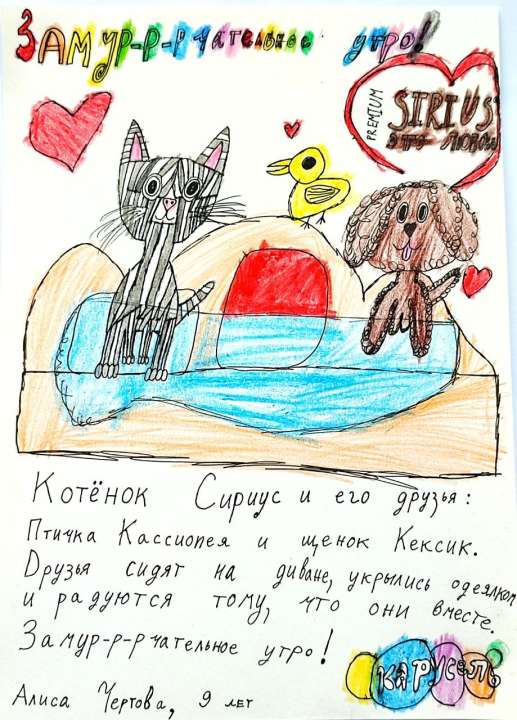 Замур-р-рчательное утро!
PREMIUM
SIRIUS
это любовь
Котёнок Сириус и его друзья:
Птичка Кассиопея и щенок Кексик.
Друзья сидят на диване, укрылись одеялком
и радуются тому, что они вместе.
Замур-р-рчательное утро!
КАРУСЕЛЬ
Алиса Чертова, 9 лет